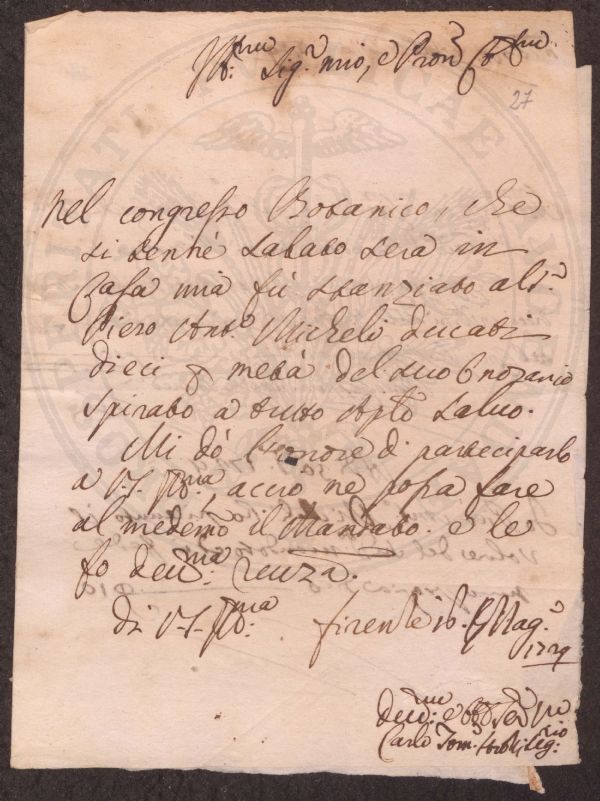 Ill:mo Sig:r mio, e Pron Col:mo
27
Nel congresso Botanico, che
si tenne sabato sera in
Casa mia fù stanziato al S:r
Piero Ant:o Micheli ducati
dieci p metà del suo Onorario
spirato a tutto Aple salvo.
Mi dò l'onore di parteciparlo
a V.S. Ill:ma, acciò ne possa fare
al medemo il Mandato. e le
fo deu:ma reuza.
Di V.S. Ill:ma Firenze 16. Mag:o
1729
deu:mo e Ser
Carlo Tom: Seg:rio